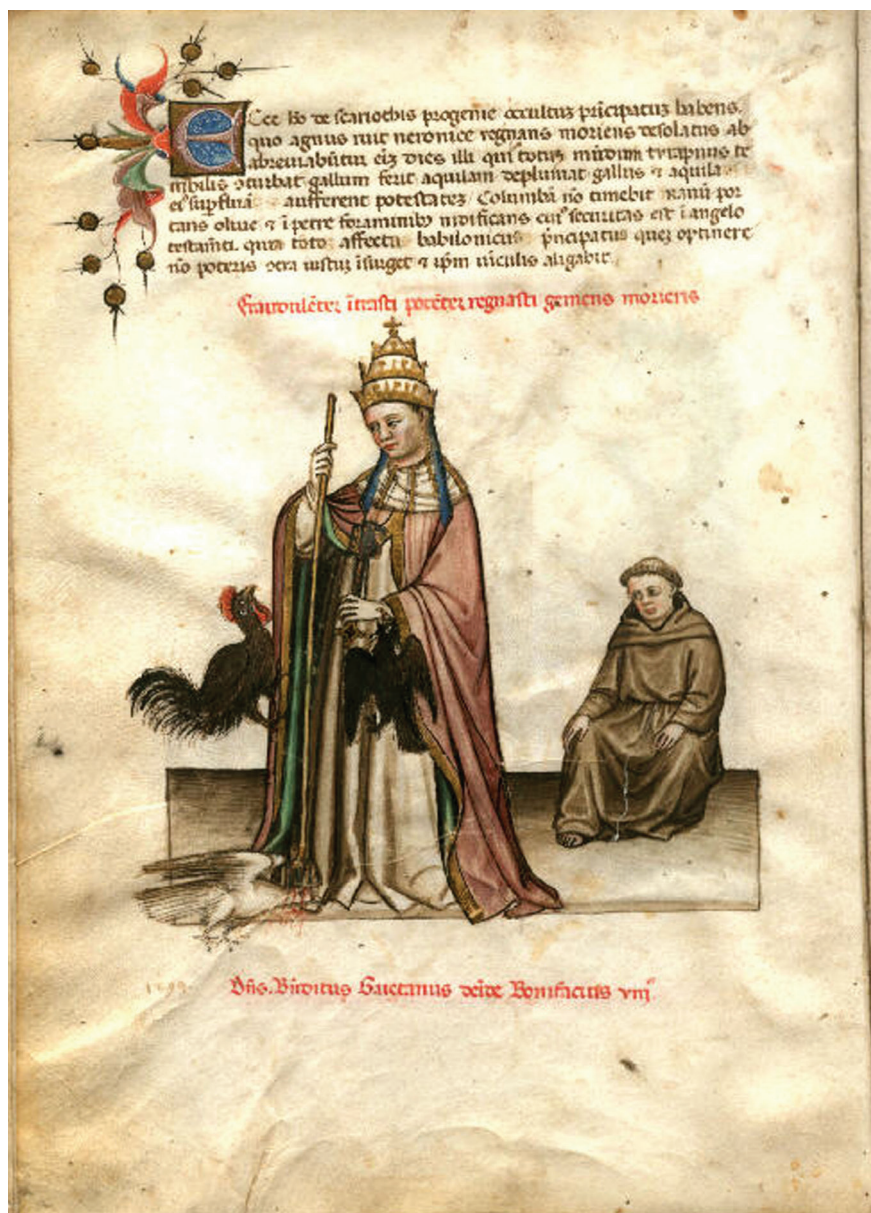 Ecce hō de scariothis progenie occultus prīcipatus habens.
quo agnus ruit neronice regnans moriens desolatus ab
abreviabūtur eiꝫ dies illi qui totuꝫ mūdum
turbat gallum ferit aquilam deplumat gallus ⁊ aquila
aufferent potestateꝫ Columbā nō timebit ramū por
tans oliue ⁊ ī petre foraminibꝰ nidificans cuiꝰ securitas est ī angelo
testamti. quia toto affectu babilonicus pncipatus queꝫ optinere
nō poteris ↄtra iustuꝫ īsurget ⁊ ipm viculis aligabit
Fraudulēter ītrasti potēter regnasti gemens morieris
Dn̄s. Bn̄dictus Gaietanus deīde Bonifacius viijꝰ